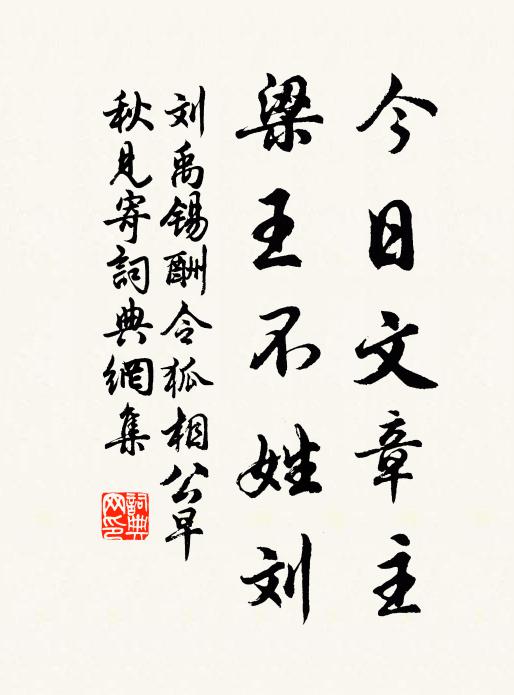 今日文章主
梁王不姓刘
刘禹锡酬令狐相公早
秋见寄詞典網集
詞典
网印